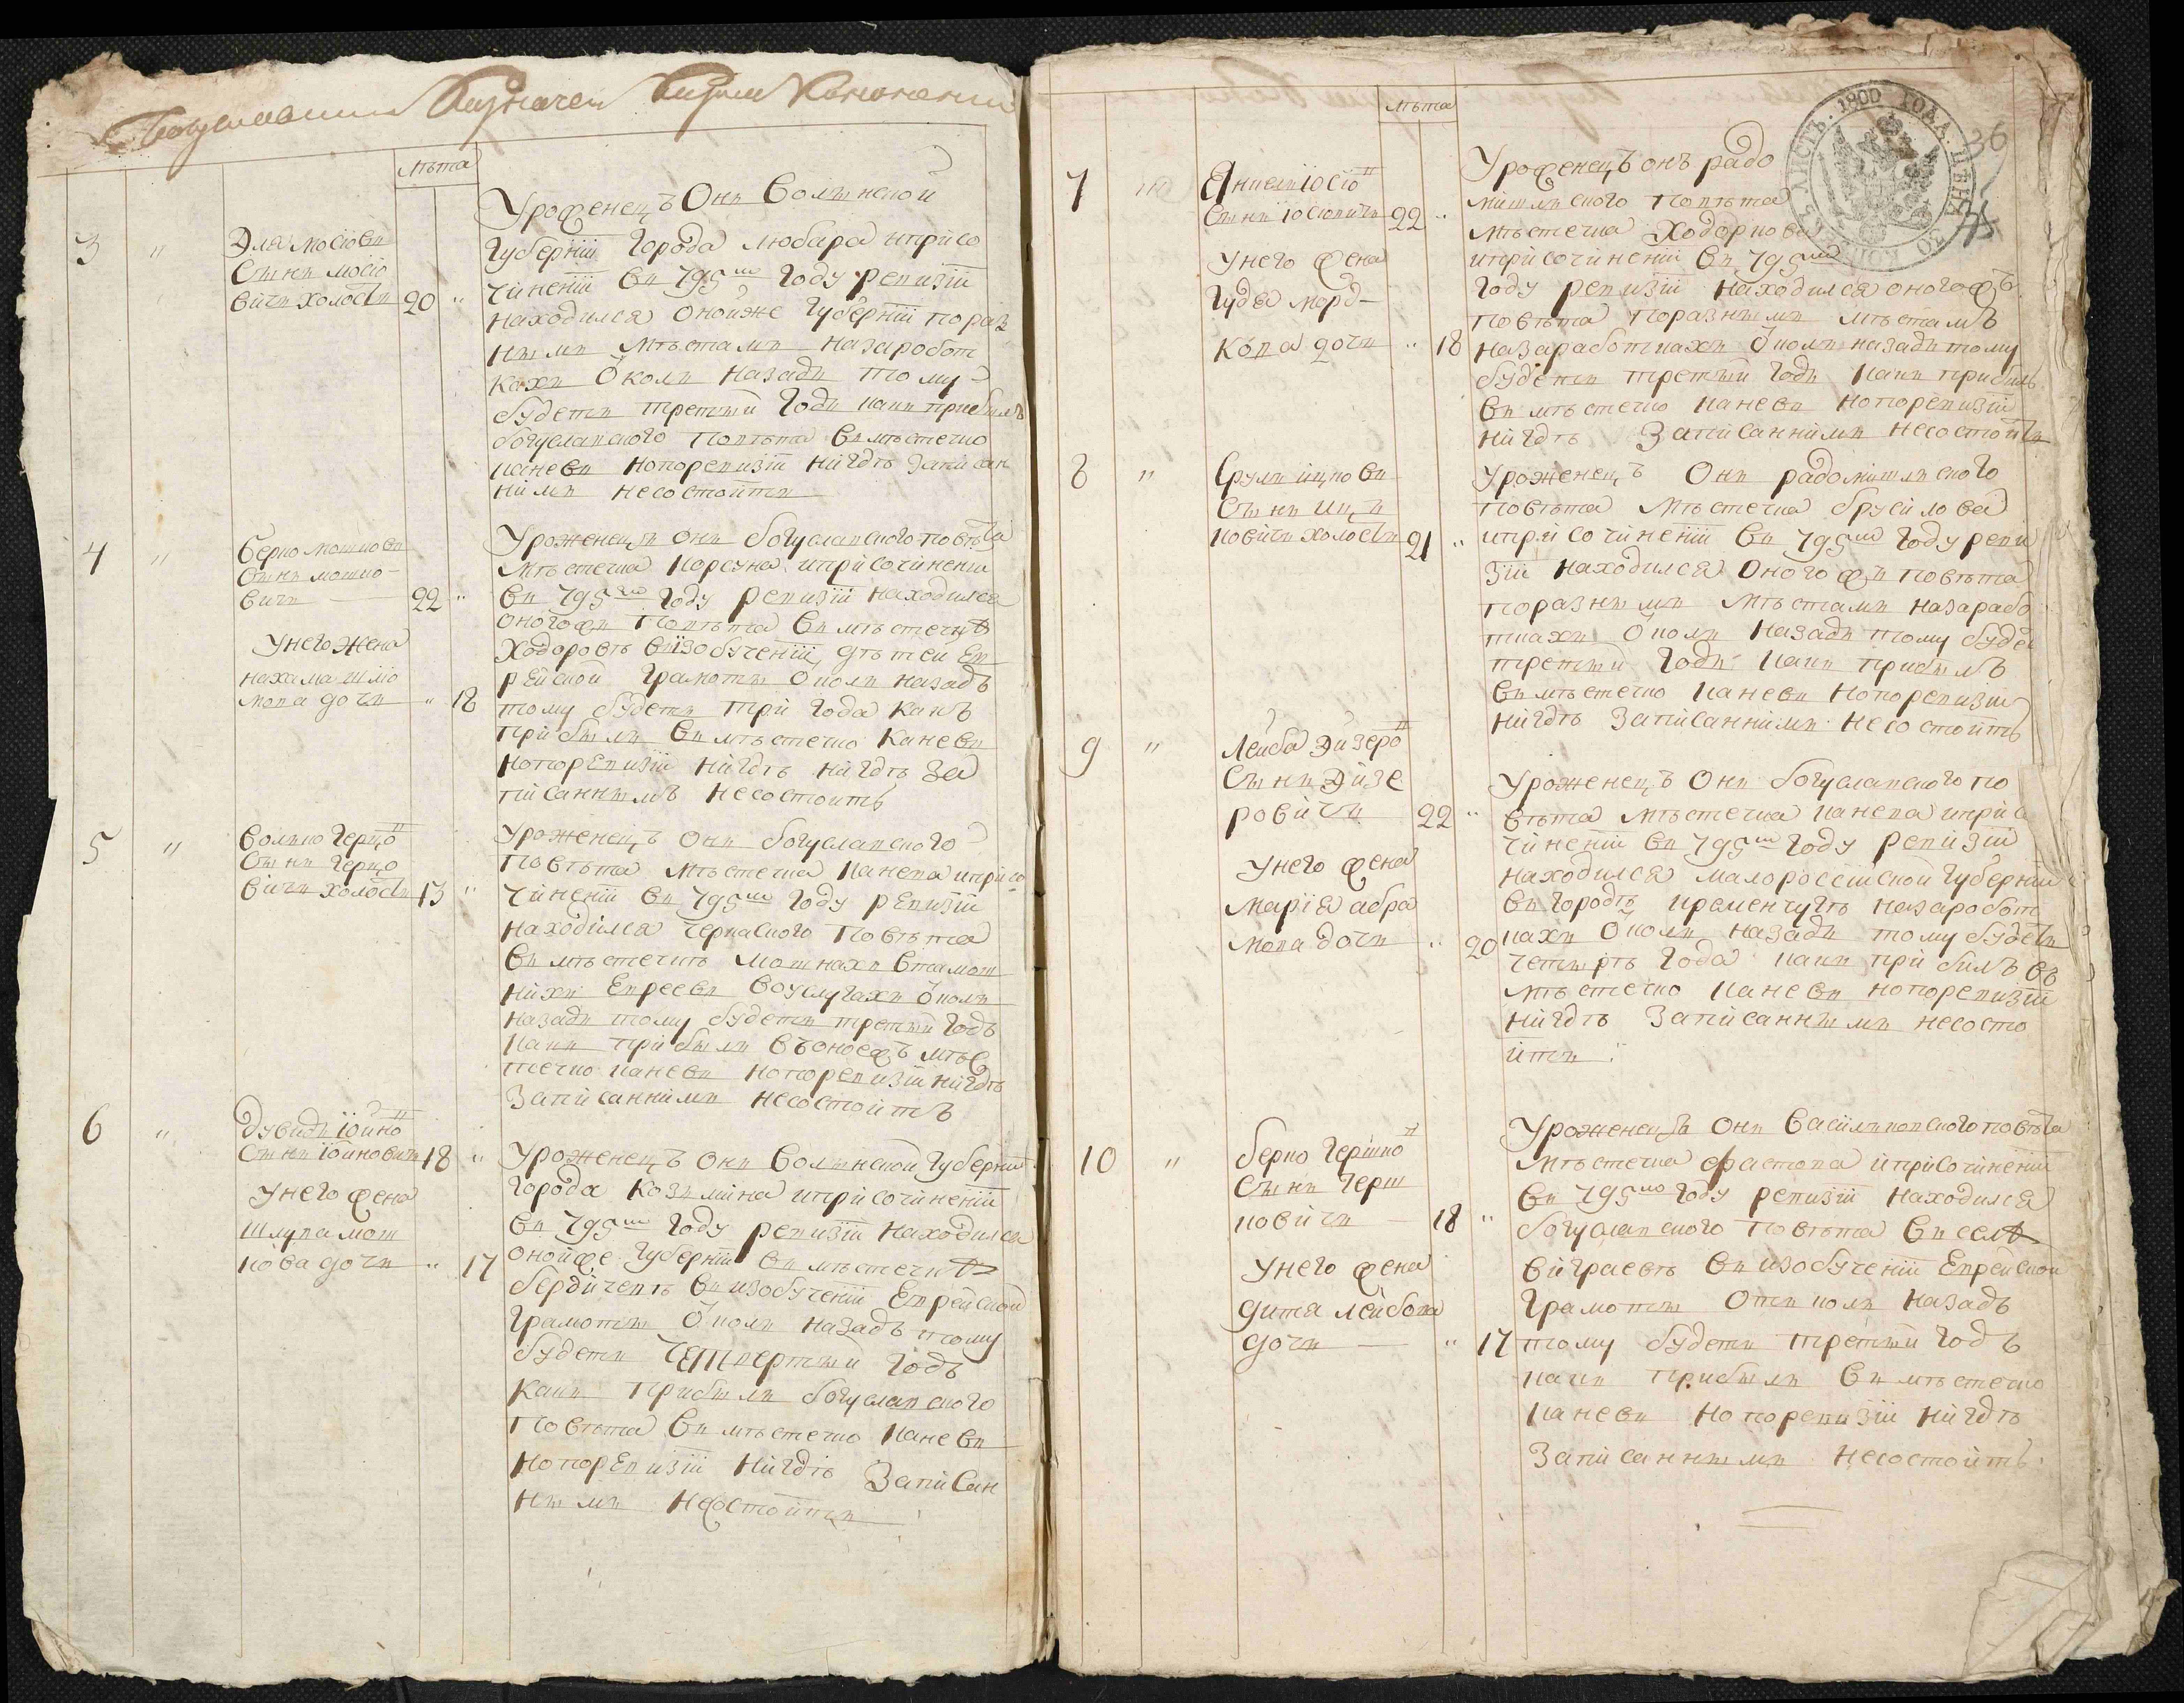 Казначей
лѣта
3 " Эля Мосіовъ
Сынъ Мосіо
вичъ холостъ 20 "
Уроженецъ Онъ Волынской
Губерніи Города Любара иприсо
чиненіи въ 795мъ Году ревизіи
находился Онойже Губерніи пораз
нымъ мѣстамъ Назаробот
кахъ Околъ Назадъ тому
будетъ третый Годъ какъ прибылъ
богуславского Повѣта Вмѣстечко
каневъ Нопоревизіи Нигдѣ Записан
нимъ Несостоитъ
4 " берко мошковъ
Сынъ мошко-
вичъ — 22 "
Унего Жена
нахама шмо
лова дочъ — " 18
Уроженецъ Онъ богуславского повѣта
Мѣстечка Корсуна иприсочиненіи
въ 795мъ Году ревизіи находился
оногожъ Повѣта Вмѣстечкѣ
Ходоровѣ Визобученіи дѣтей Ев
рейской Грамоты Околъ назадъ
тому будетъ три Года какъ
прибылъ Вмѣстечко Каневъ
Нопоревизіи Нигдѣ Нигдѣ За
писаннымъ Несостоитъ
5 " Волько Герцо в
Сынъ Герцо
вичъ холостъ 13 "
Уроженецъ Онъ богуславского
Повѣта Мѣстечка Канева иприсо
чиненіи въ 795мъ Году ревизіи
находился Черкаского Повѣта
Вмѣстечкѣ Мошнахъ Втамош
нихъ Евреевъ Воуслугахъ Околъ
назадъ тому будетъ третый Годъ
какъ прибылъ въоноежъ мѣс
течко каневъ нопоревизіи Нигдѣ
Записаннимъ Несостоитъ
6 " Дувидъ Іойно в
Сынъ Іойновичъ 18 "
Унего жена
Шлува мош
кова дочъ " 17
Уроженецъ Онъ Волынской Губерніи
Города Козьмина иприсочиненіи
въ 795мъ Году ревизіи Находился
Онойже Губерніи Вмѣстечкѣ
бердичевѣ Визобученіи Еврейской
Грамоты Околъ назадъ тому
будетъ Четвертый Годъ
Какъ прибылъ богуславского
Повѣта Вмѣстечко Каневъ
Нопоревизіи Нигдѣ Записан
нымъ Несостоитъ
1800 ГОДА. ЦѢНА 30 КОП ЛИСТЪ.
36
лѣта
7 Янкелъ Іосіо в
Сынъ Іосіовичъ 22 "
Унего жена
Гудя морд-
кова дочъ " 18
Уроженецъ онъ радо
мишлского Повѣта
мѣстечка Ходоркова
иприсочиненіи въ 795мъ
Году ревизіи находился оногожъ
Повѣта поразнымъ мѣстамъ
назаработкахъ Околъ назадъ тому
будетъ третый Годъ какъ прибылъ
Вмѣстечко каневъ нопоревизіи
нигдѣ Записаннимъ несостоитъ
8 " Срулъ ицковъ
Сынъ Иц
ковичъ холостъ 21 "
Уроженецъ Онъ радомишлского
Повѣта Мѣстечка брусилова
иприсочиненіи въ 795мъ Году реви
зіи находился Оногожъ повѣта
поразнымъ мѣстамъ назарабо
ткахъ Околъ назадъ тому буде
третый Годъ какъ прибылъ
Вмѣстечко каневъ Нопоревизіи
нигдѣ Записаннимъ несостоитъ
9 " Лейба Эйзеро в
Сынъ Эйзе
ровичъ 22 "
Унего жена
Марія абра
мова дочъ " 20
Уроженецъ Онъ богуславского по
вѣта мѣстечка канева иприсо
чиненіи въ 795мъ Году ревизіи
находился малоросійской губерніи
въ городѣ кременчугѣ назаробот
кахъ Околъ назадъ тому будетъ
четырѣ Года какъ прибилъ въ
мѣстечко каневъ нопоревизіи
Нигдѣ Записаннымъ несосто
итъ
10 " берко Гершко в
Сынъ Герш
ковичъ 18 "
Унего жена
дитя лейбова
дочъ — " 17
Уроженецъ Онъ Василковского повѣта
Мѣстечка фастова иприсочиненіи
въ 795мъ Году ревизіи находился
богуславского Повѣта Вселѣ
Виграевѣ Визобученіи Еврейской
Грамоты Отъколъ назадъ
тому будетъ третый Годъ
какъ прибылъ Вмѣстечко
каневъ Нопоревизіи нигдѣ
Записаннымъ Несостоитъ